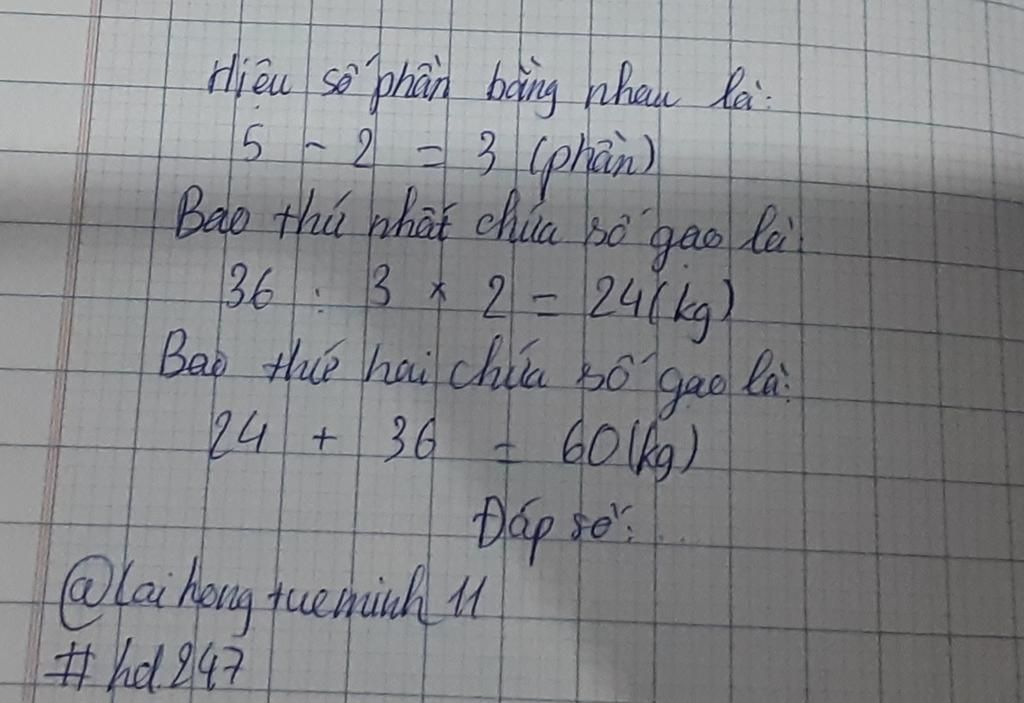 Hiệu số phần bằng nhau là:
5 - 2 = 3 (phần)
Bao thứ nhất chứa số gạo là:
36 : 3 x 2 = 24(kg)
Bao thứ hai chứa số gạo là:
24 + 36 = 60(kg)
Đáp số:...
@laihongtueminh11
#hd247